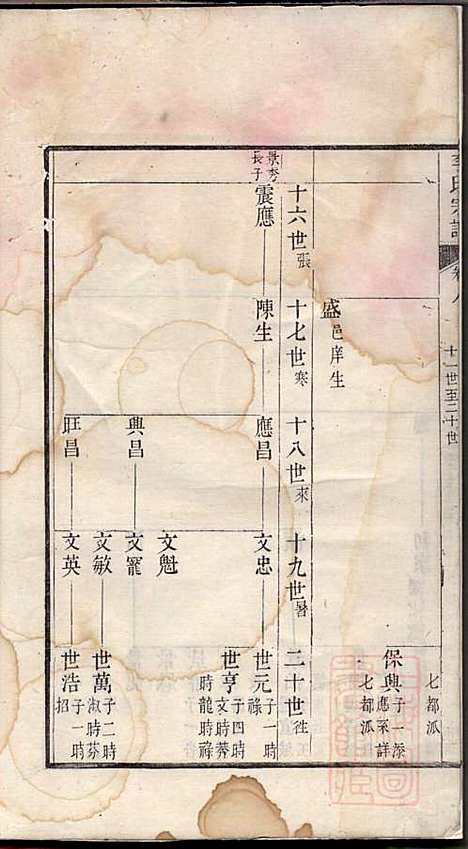 氏宗譜
卷八
十一世至二十世
七都派
保興 子一添應系詳七都派
盛 邑庠生
十六世 張
十七世 寒
十八世 來
十九世 暑
二十世 往
景秀長子
震應
陳生
應昌
文忠
世元 子一時祿
世亨 子四時文時莠時龍時祥
文魁
興昌
文寵
文敏
世萬 子二時淑時芬
旺昌
文英
世浩 子一時招